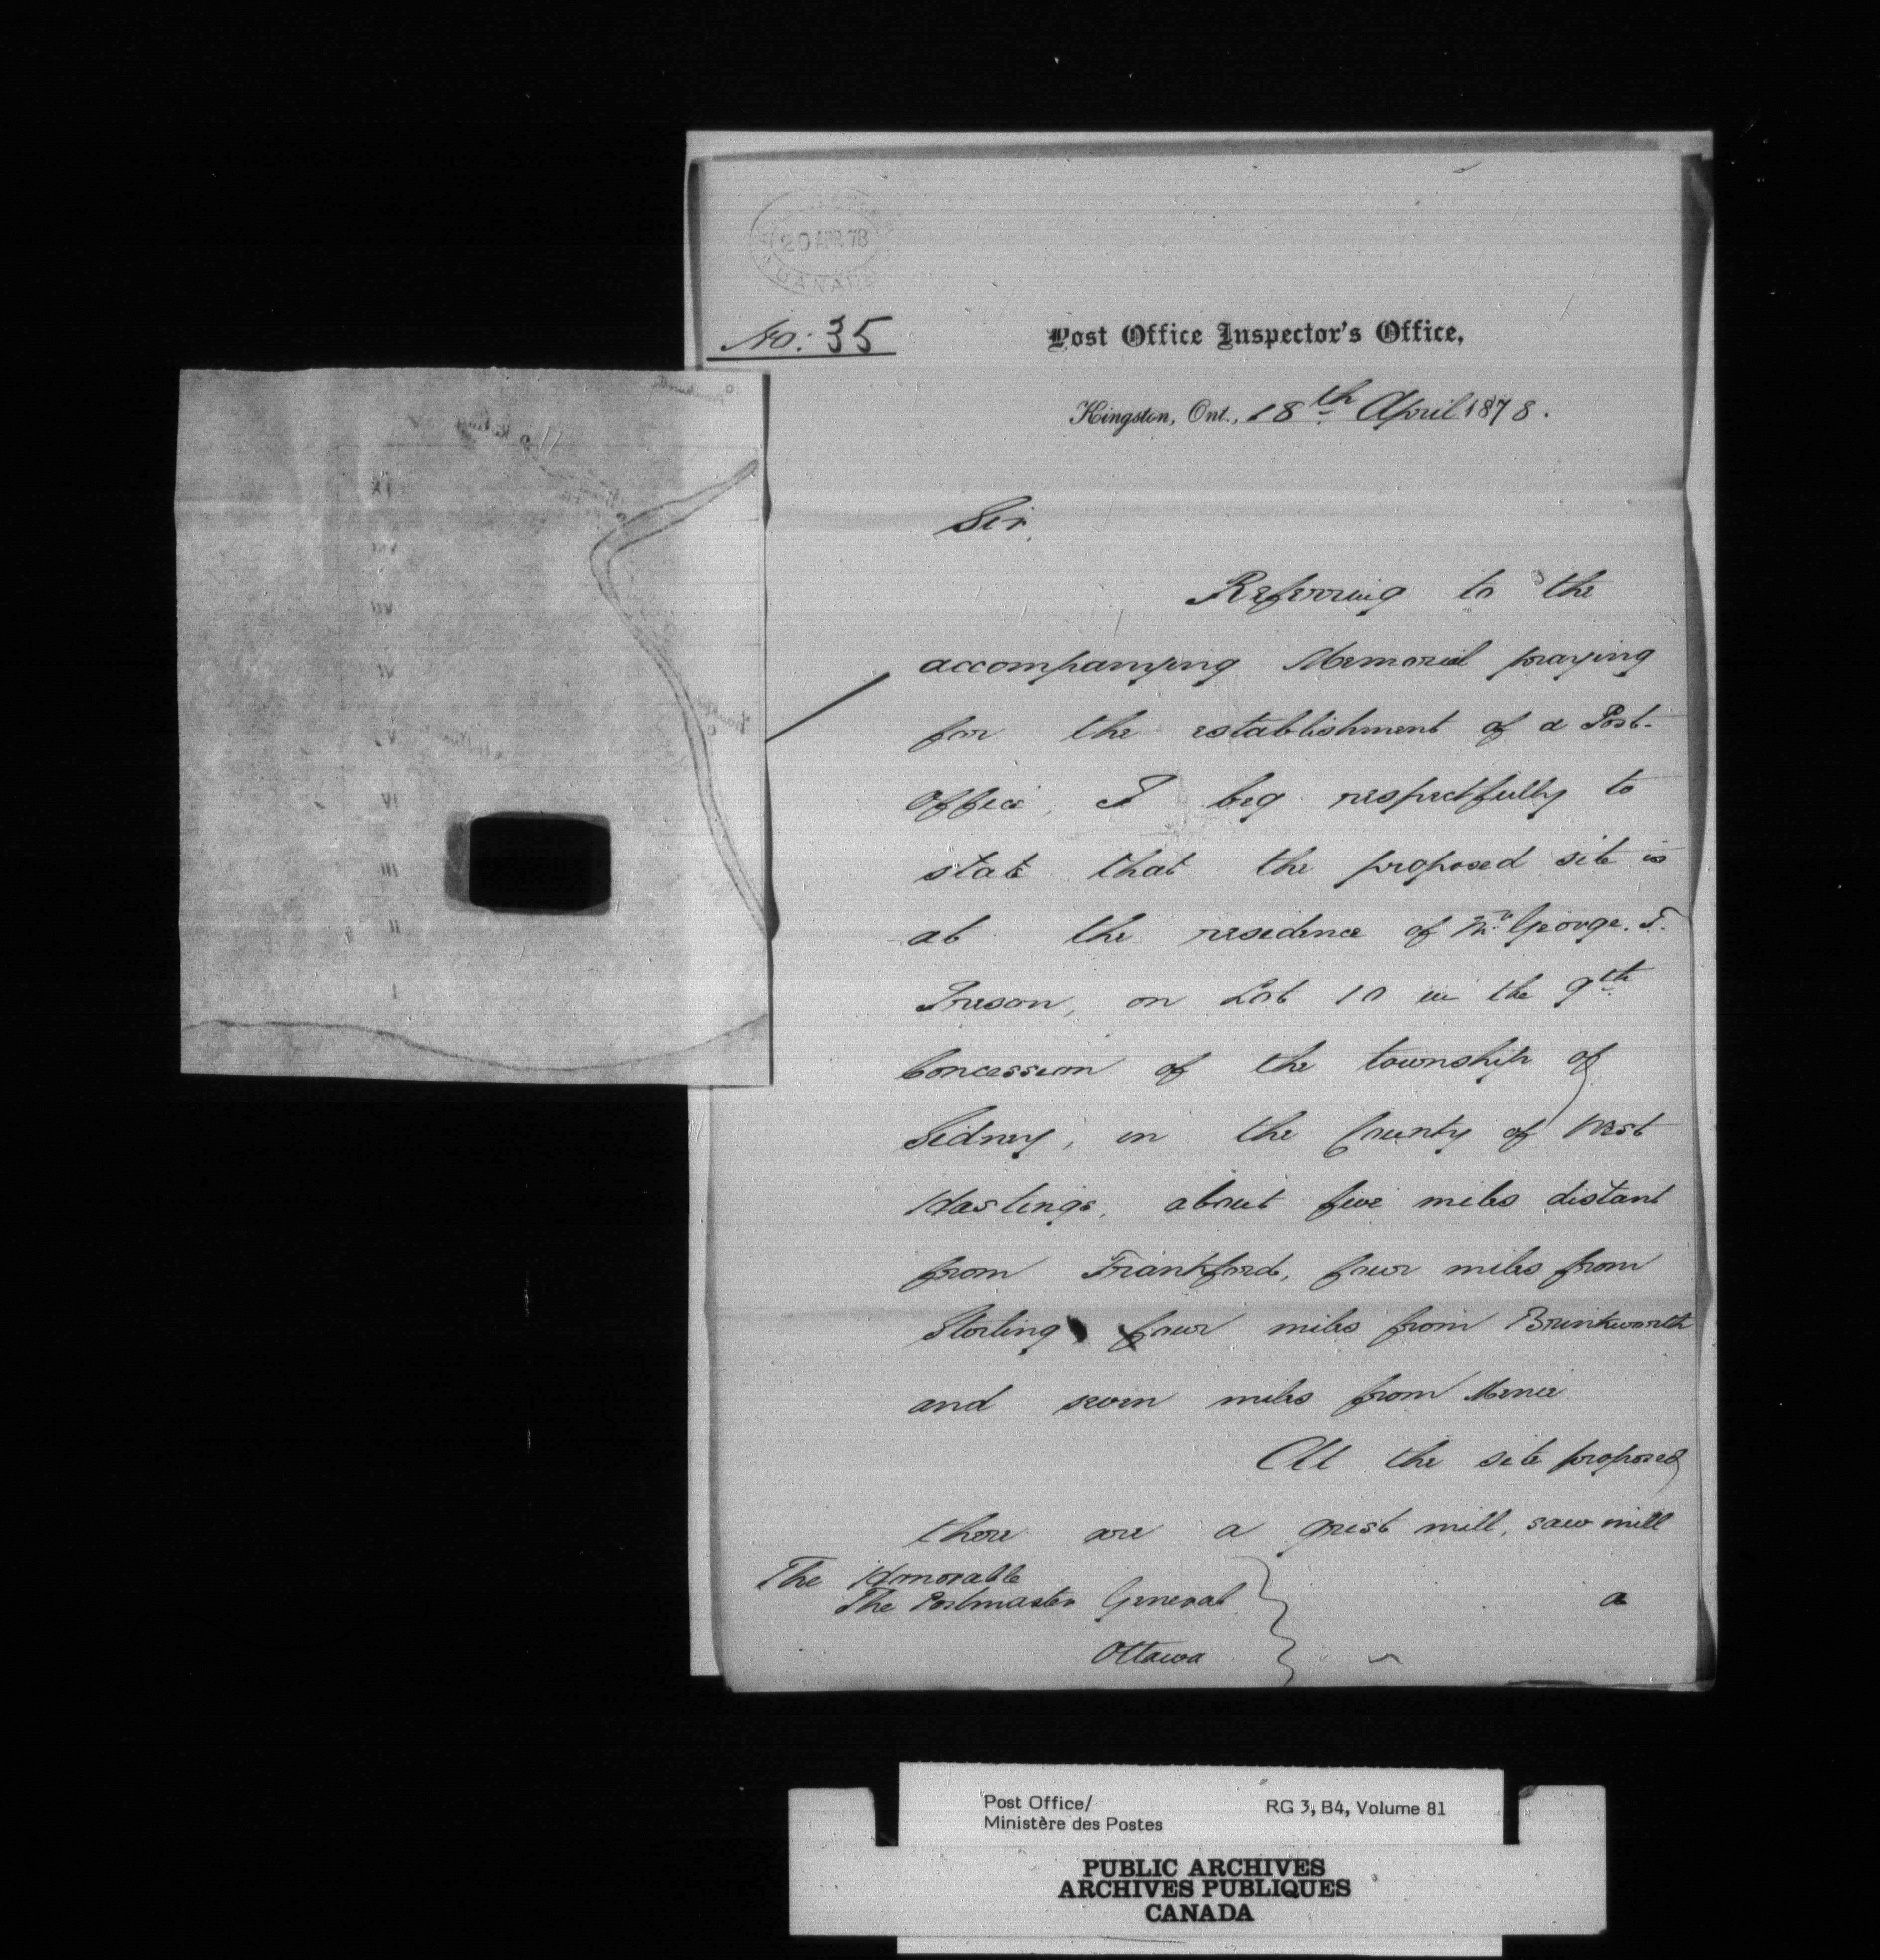 20 APR 78
CANADA
No: 35
Post Office Inspector's Office,
Kingston, Ont., 18th April 1878.
Sir,
Referring to the
accompanying Memorial praying
for the establishment of a Post-
Office, I beg respectfully to
state that the proposed site is
at the residence of Mr. George. T.
on Lot 10 in the 9th
Concession of the township of
Sidney, in the County of West
Hastings, about five miles distant
from Frankford, four miles from
Sterling four miles from Brinkworth
and seven miles from Menie
At the site proposed
there are a grist mill, saw mill
The Honorable
The Postmaster General
Ottawa
a
IX
VIII
VII
VI
V
IV
III
II
I
Post Office/
Ministère des Postes
RG 3, B4, Volume 81
PUBLIC ARCHIVES
ARCHIVES PUBLIQUES
CANADA